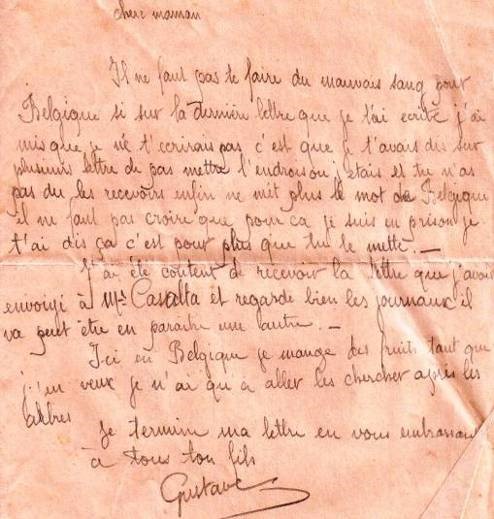 chere maman
Il ne faut pas te faire du mauvais sang pour
Belgique si sur la derniere lettre que je t'ai ecrite j'ai
mis que je ne t'ecrirais pas c'est que je t'avais dis sur
plusieurs lettre de pas mettre l'endroit ou j'etais et tu n'as
pas du les recevoirs enfin ne met plus le mot de Belgique
il ne faut pas croire que pour ca je suis en prison je
t'ai dis ça c'est pour plus que tu le mette. —
J'ai éte content de recevoir la lettre que j'avais
envoyé à Mr Casalta et regarde bien les journaux il
va peut être en paraitre une autre. —
Ici en Belgique je mange des fruits tant que
j'en veux je n'ai qu'a aller les chercher après les
arbres
Je termine ma lettre en vous embrassant
à tous ton fils
Gustave